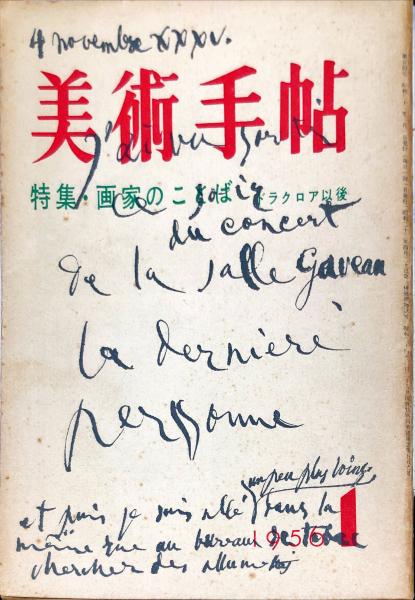 4 novembre XXXV.
美術手帖
j'ai vu sortir
特集・画家のことば ドラクロア以後
ce soir
du concert
de la salle Gaveau
la dernière
personne
un peu plus loing
et puis je suis allé dans la
même rue au bureau de tabac
chercher des allumettes
1956 1